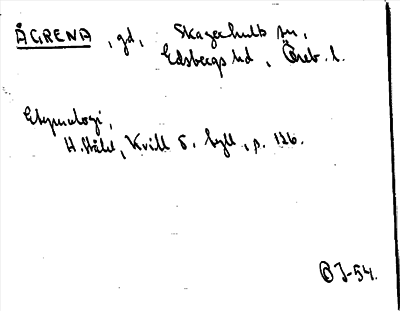 ÅGRENA, gd, Skagerhults sn,
Edsbergs hd, Öreb. l.
Etymologi,
H. Ståhl, Kvill o. hyll, p. 126.
BJ-54.